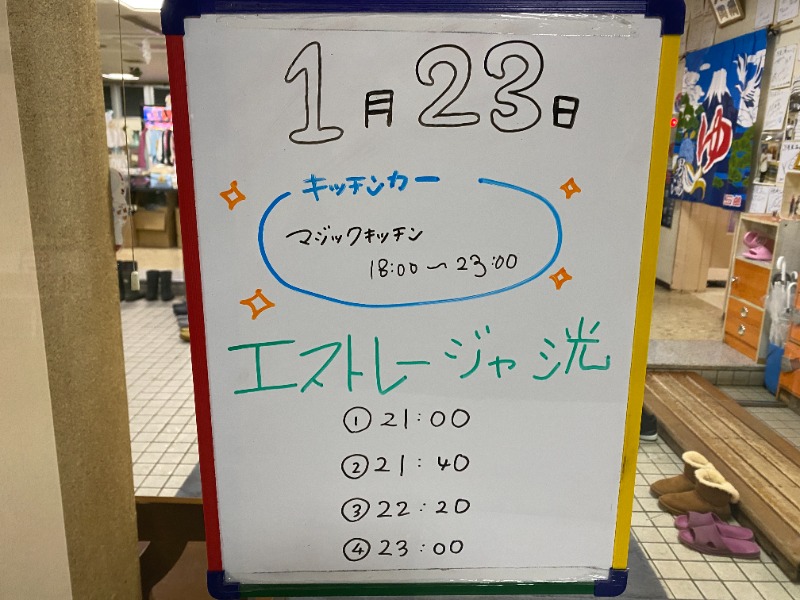 1月23日
キッチンカー
マジックキッチン
18:00〜23:00
エストレージャ洸
① 21:00
② 21:40
③ 22:20
④ 23:00
ゆ